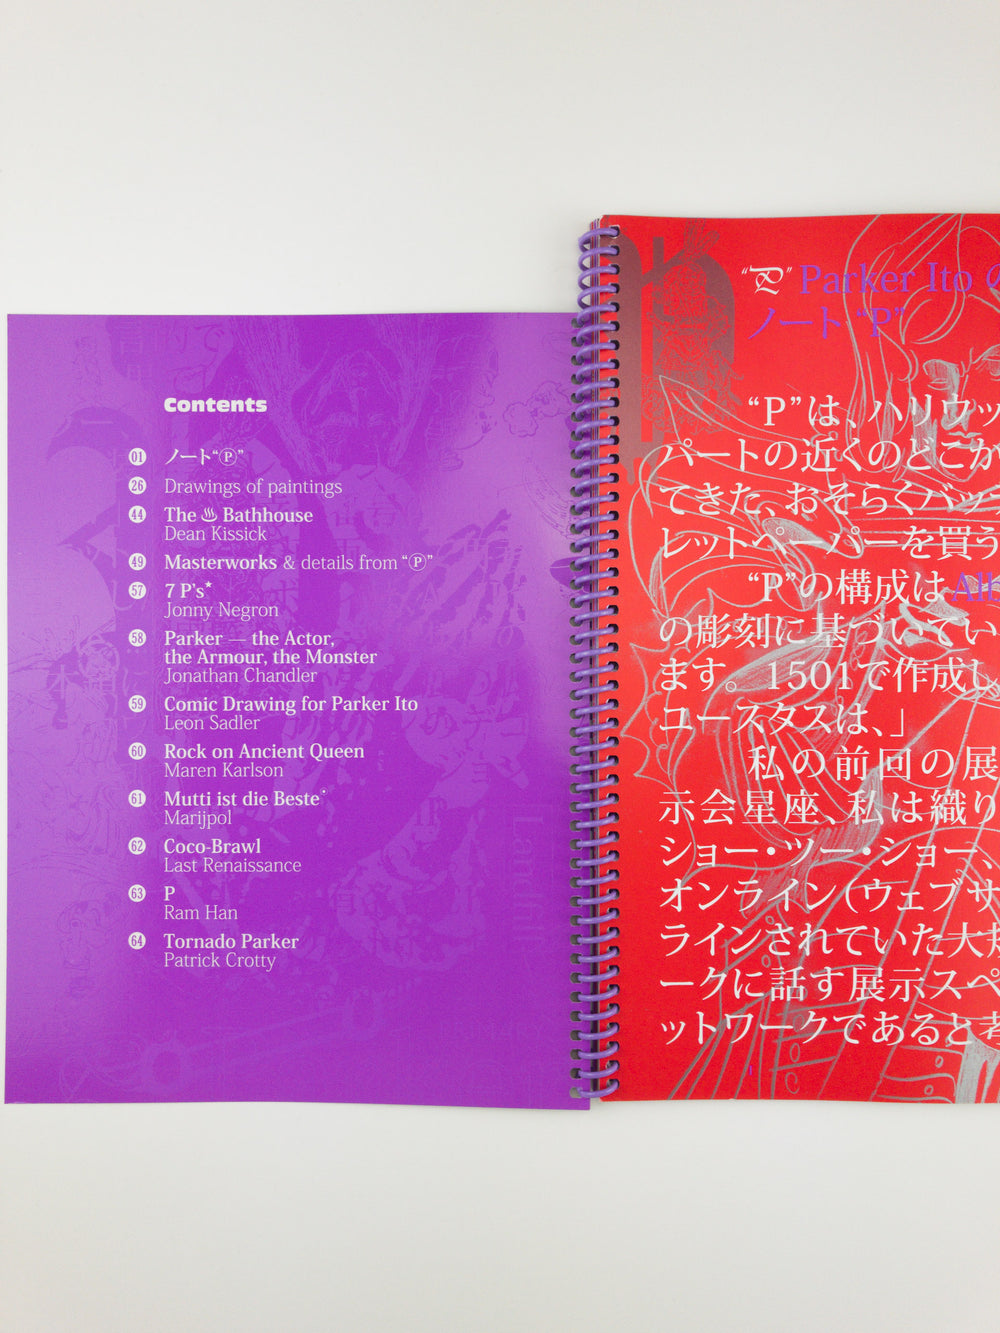 Contents
01 ノート“Ⓟ”
26 Drawings of paintings
44 The ♨ Bathhouse
Dean Kissick
49 Masterworks & details from “Ⓟ”
57 7 P's*
Jonny Negron
58 Parker — the Actor,
the Armour, the Monster
Jonathan Chandler
59 Comic Drawing for Parker Ito
Leon Sadler
60 Rock on Ancient Queen
Maren Karlson
61 Mutti ist die Beste
Marijpol
62 Coco-Brawl
Last Renaissance
63 P
Ram Han
64 Tornado Parker
Patrick Crotty
“P” Parker Ito の
ノート “P”
“P”は、ハリウッ
パートの近くのどこか
てきた、おそらくバッ
レットペーパーを買う
“P”の構成は Alb
の彫刻に基づいてい
ます。1501で作成し
ユースタスは、」
私の前回の展
示会星座、私は織り
ショー・ツー・ショー、
オンライン（ウェブサ
ラインされていた大規
ークに話す展示スペ
ットワークであると考